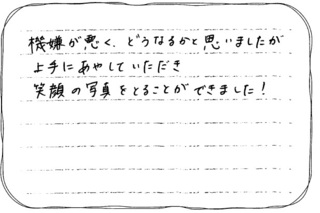 機嫌が悪く、どうなるかと思いましたが
上手にあやしていただき
笑顔の写真をとることができました！